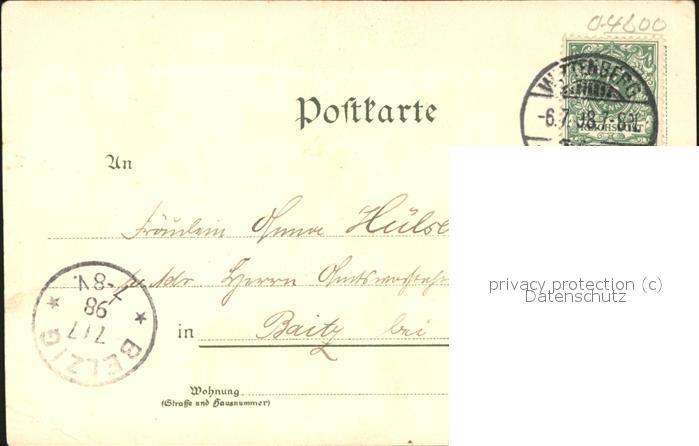 04600
WITTENBERG
-6.7.98.7-8N.
REICHSPOST
Postkarte
An
Fräulein Anna Hülse
p. Adr. Herrn
privacy protection (c)
Datenschutz
7-8V.
98
7/7
BELZIG
in Baitz bei
Wohnung
(Straße und Hausnummer)